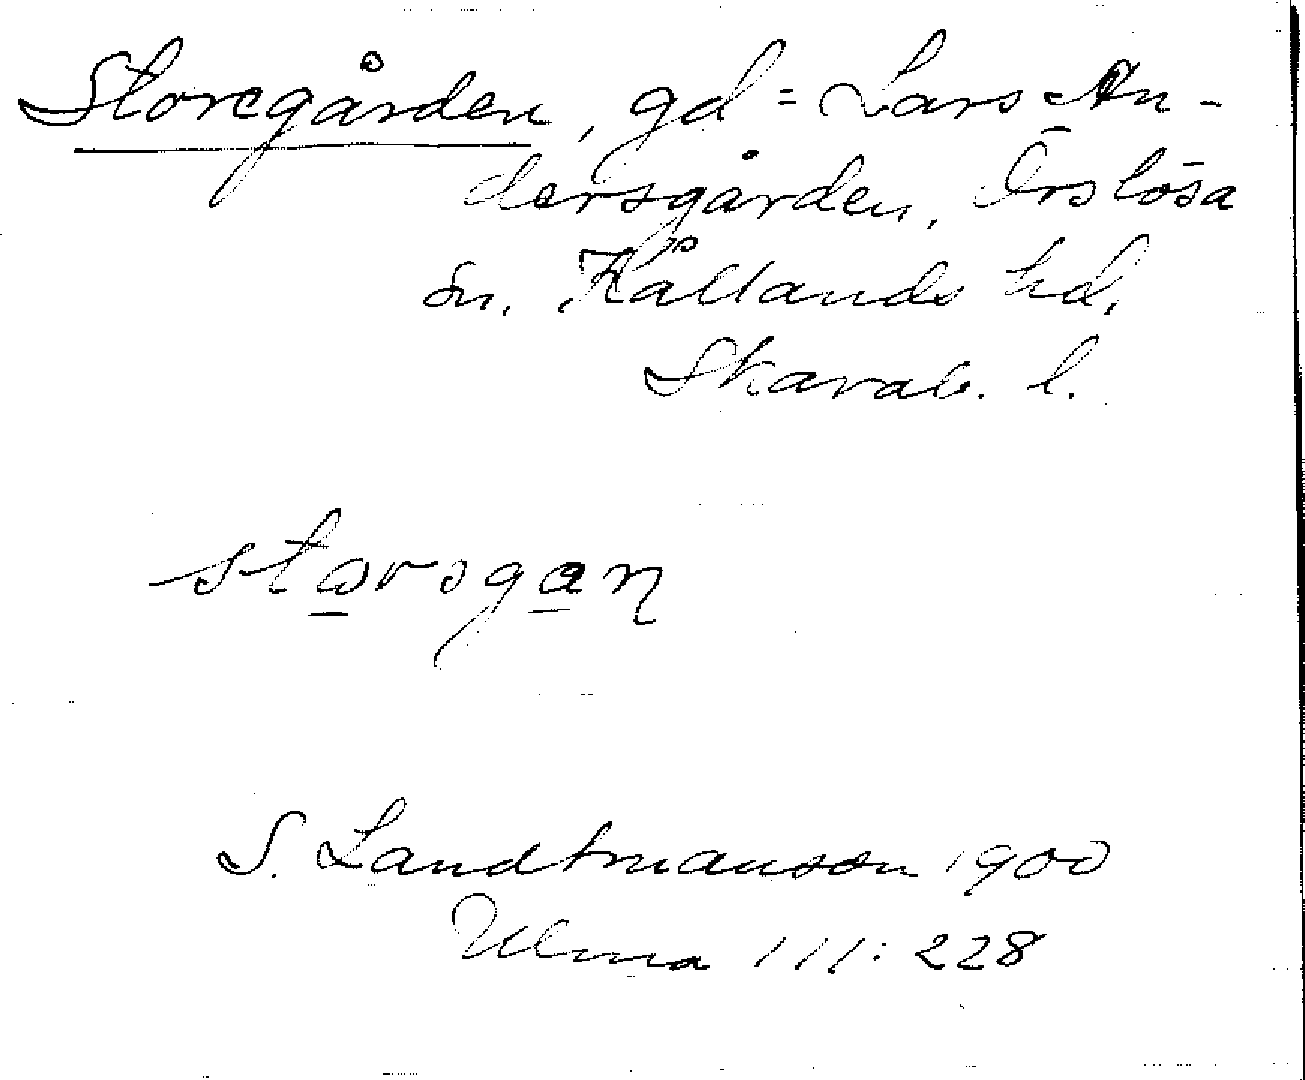 Storegården, gd = Lars An-
dersgården, Örslösa
sn, Kållands hd,
Skarab. l.
storsgan
S. Landtmanson 1900
Ulma 111:228